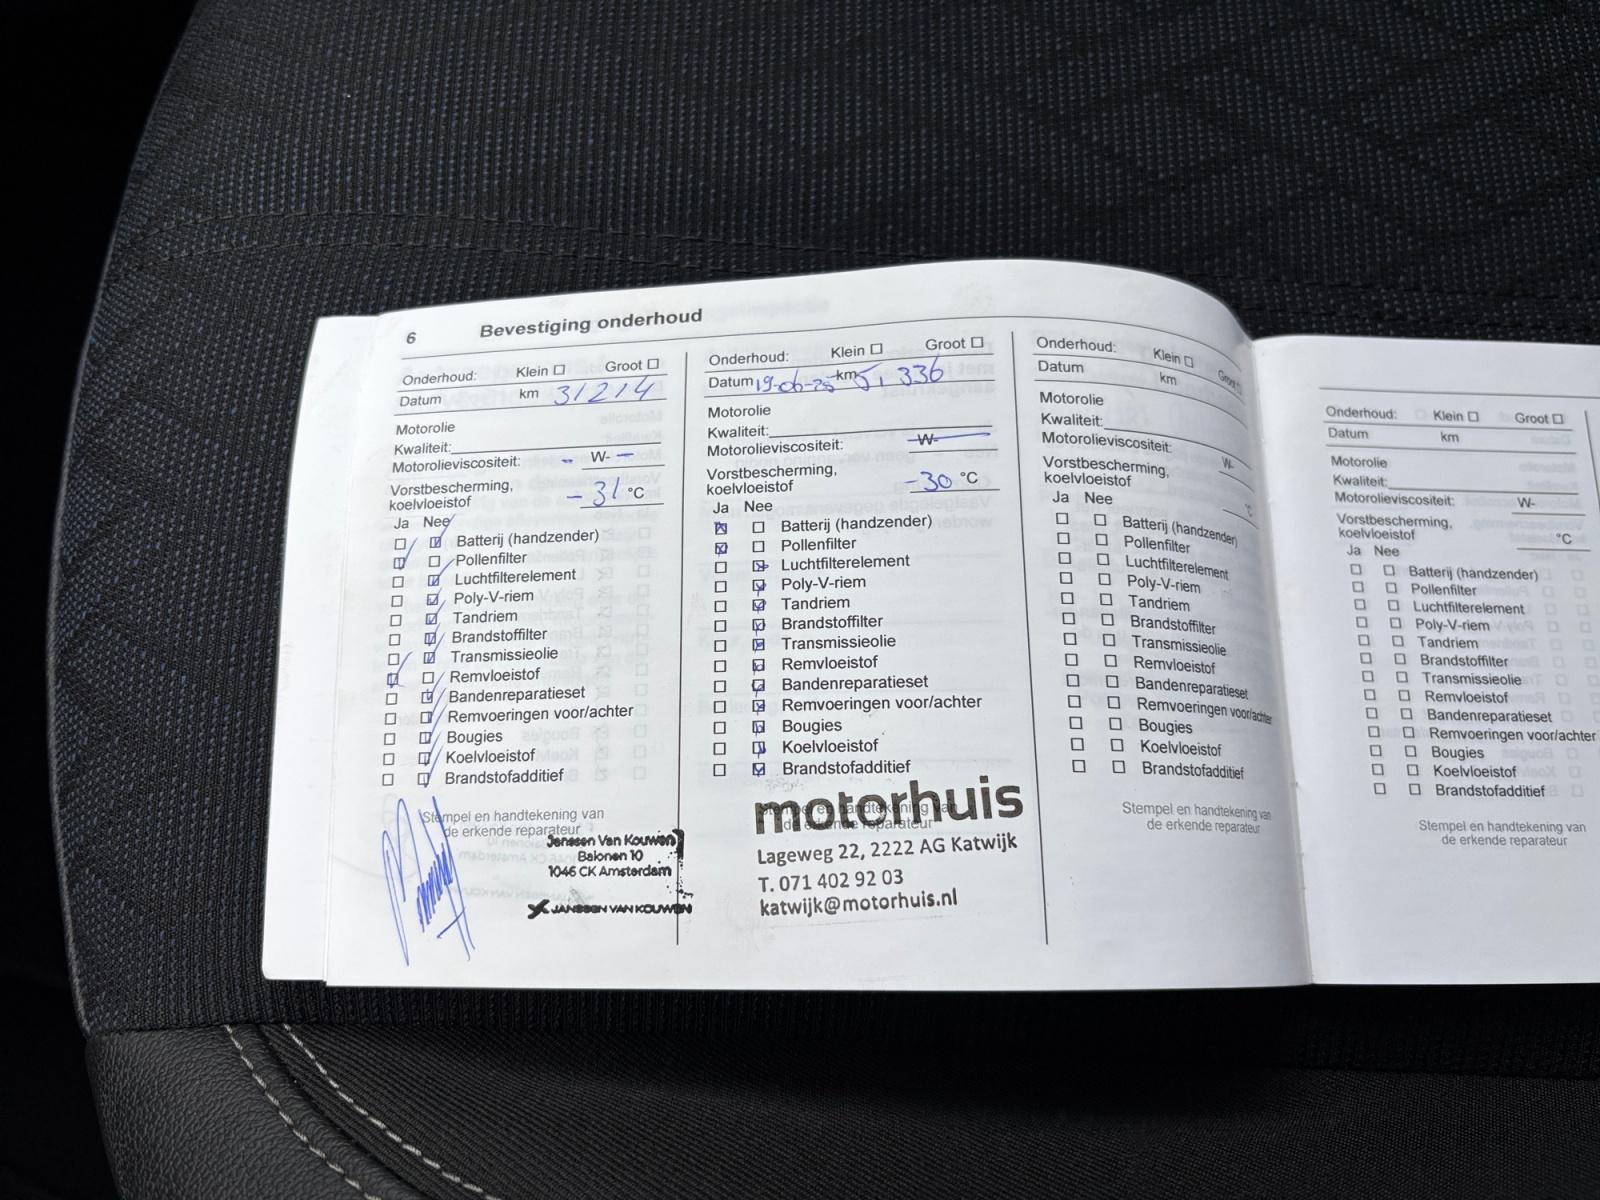 6 Bevestiging onderhoud
Onderhoud: Klein ☐ Groot ☐
Datum km 31214
Motorolie
Kwaliteit:
Motorolieviscositeit: - W- -
Vorstbescherming,
koelvloeistof -31 °C
Ja Nee
Batterij (handzender)
Pollenfilter
Luchtfilterelement
Poly-V-riem
Tandriem
Brandstoffilter
Transmissieolie
Remvloeistof
Bandenreparatieset
Remvoeringen voor/achter
Bougies
Koelvloeistof
Brandstofadditief
Stempel en handtekening van
de erkende reparateur
Janssen Van Kouwen
Balonen 10
1046 CK Amsterdam
JANSSEN VAN KOUWEN
Onderhoud: Klein ☐ Groot ☐
Datum 19-06-25 km 51336
Motorolie
Kwaliteit:
Motorolieviscositeit: W-
Vorstbescherming,
koelvloeistof -30 °C
Ja Nee
Batterij (handzender)
Pollenfilter
Luchtfilterelement
Poly-V-riem
Tandriem
Brandstoffilter
Transmissieolie
Remvloeistof
Bandenreparatieset
Remvoeringen voor/achter
Bougies
Koelvloeistof
Brandstofadditief
Stempel en handtekening van
de erkende reparateur
motorhuis
Lageweg 22, 2222 AG Katwijk
T. 071 402 92 03
katwijk@motorhuis.nl
Onderhoud: Klein ☐ Groot ☐
Datum km
Motorolie
Kwaliteit:
Motorolieviscositeit: W-
Vorstbescherming,
koelvloeistof °C
Ja Nee
Batterij (handzender)
Pollenfilter
Luchtfilterelement
Poly-V-riem
Tandriem
Brandstoffilter
Transmissieolie
Remvloeistof
Bandenreparatieset
Remvoeringen voor/achter
Bougies
Koelvloeistof
Brandstofadditief
Stempel en handtekening van
de erkende reparateur
Onderhoud: Klein ☐ Groot ☐
Datum km
Motorolie
Kwaliteit:
Motorolieviscositeit: W-
Vorstbescherming,
koelvloeistof °C
Ja Nee
Batterij (handzender)
Pollenfilter
Luchtfilterelement
Poly-V-riem
Tandriem
Brandstoffilter
Transmissieolie
Remvloeistof
Bandenreparatieset
Remvoeringen voor/achter
Bougies
Koelvloeistof
Brandstofadditief
Stempel en handtekening van
de erkende reparateur